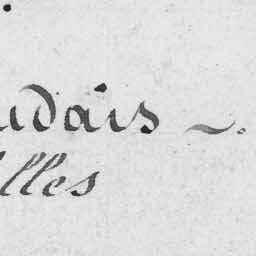 udais ~.
lles